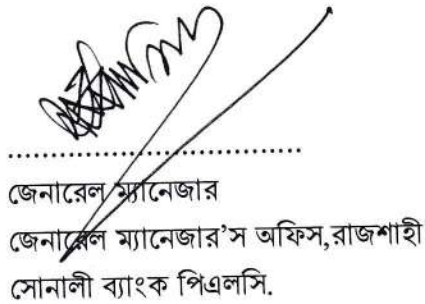 জেনারেল ম্যানেজার
জেনারেল ম্যানেজার’স অফিস,রাজশাহী
সোনালী ব্যাংক পিএলসি.